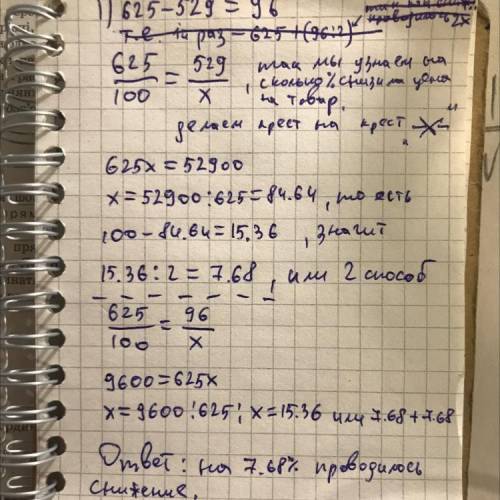 1) 625-529 = 96
т.е. 1й раз = 625+(96:2)
625/100 = 529/x , так мы узнаем на
сколько % снизили цена
на товар.
делаем крест на крест „X“
625x = 52900
x = 52900:625 = 84.64, то есть
100-84.64=15.36 , значит
15.36:2 = 7.68, или 2 способ
625/100 = 96/x
9600=625x
x=9600:625; x=15.36 или 7.68+7.68
Ответ: на 7.68% проводилось
снижение.